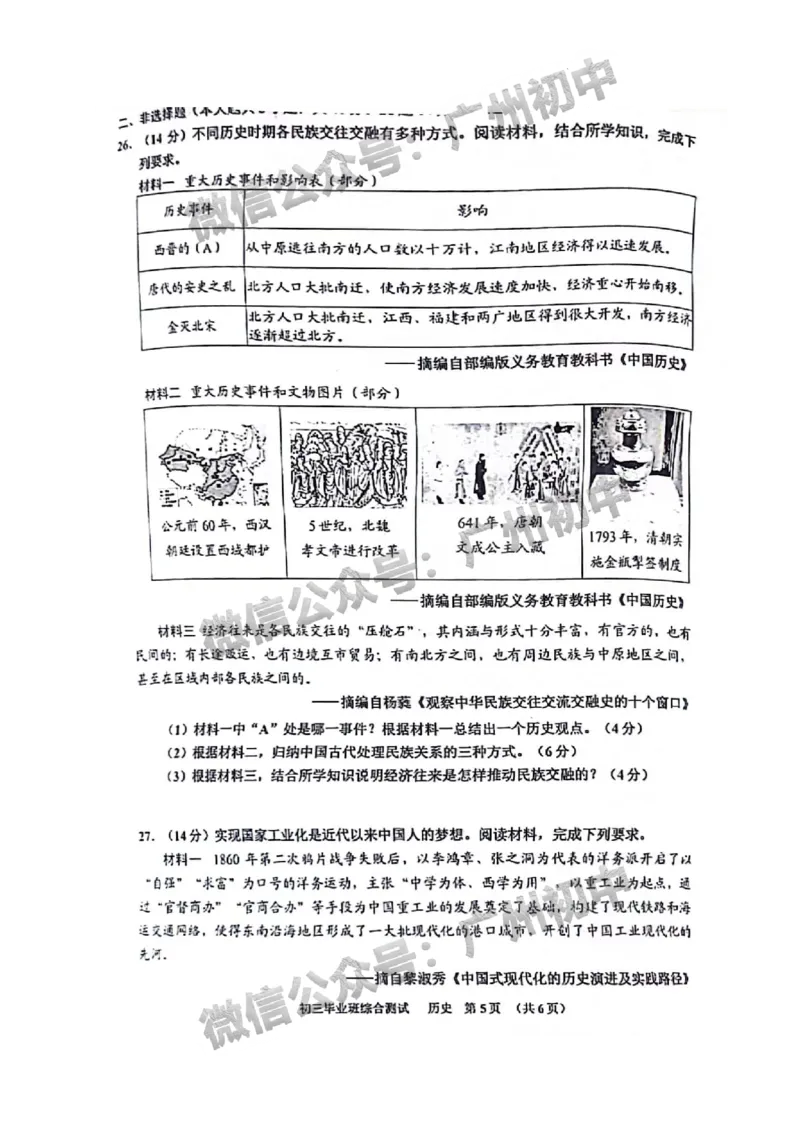 二、非选择题
26.（14分）不同历史时期各民族交往交融有多种方式。阅读材料，结合所学知识，完成下
列要求。
材料一 重大历史事件和影响表（部分）
历史事件 影响
西晋的（A） 从中原逃往南方的人口数以十万计，江南地区经济得以迅速发展。
唐代的安史之乱 北方人口大批南迁，使南方经济发展速度加快，经济重心开始南移。
金灭北宋 北方人口大批南迁，江西、福建和两广地区得到很大开发，南方经济
逐渐超过北方。
——摘编自部编版义务教育教科书《中国历史》
材料二 重大历史事件和文物图片（部分）
公元前60年，西汉
朝廷设置西域都护
5世纪，北魏
孝文帝进行改革
641年，唐朝
文成公主入藏
1793年，清朝实
施金瓶掣签制度
——摘编自部编版义务教育教科书《中国历史》
材料三 经济往来是各民族交往的“压舱石”，其内涵与形式十分丰富，有官方的，也有
民间的；有长途贩运，也有边境互市贸易；有南北方之间，也有周边民族与中原地区之间，
甚至在区域内部各民族之间的。
——摘编自杨蕤《观察中华民族交往交流交融史的十个窗口》
（1）材料一中“A”处是哪一事件？根据材料一总结出一个历史观点。（4分）
（2）根据材料二，归纳中国古代处理民族关系的三种方式。（6分）
（3）根据材料三，结合所学知识说明经济往来是怎样推动民族交融的？（4分）
27.（14分）实现国家工业化是近代以来中国人的梦想。阅读材料，完成下列要求。
材料一 1860年第二次鸦片战争失败后，以李鸿章、张之洞为代表的洋务派开启了以
“自强”“求富”为口号的洋务运动，主张“中学为体、西学为用”，以重工业为起点，通
过“官督商办”“官商合办”等手段为中国重工业的发展奠定了基础，构建了现代铁路和海
运交通网络，使得东南沿海地区形成了一大批现代化的港口城市，开创了中国工业现代化的
先河。
——摘自黎淑秀《中国式现代化的历史演进及实践路径》
初三毕业班综合测试 历史 第5页 （共6页）
微信公众号：广州初中
微信公众号：广州初中
微信公众号：广州初中